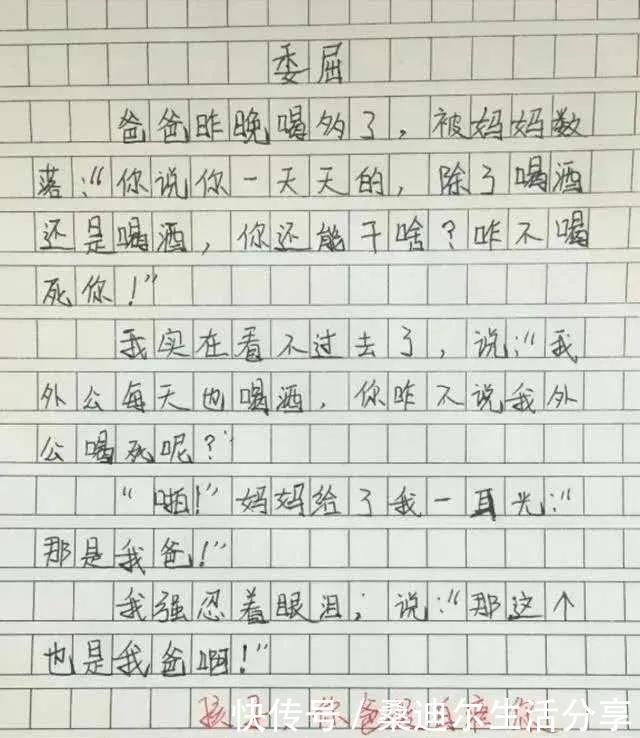 委屈
爸爸昨晚喝多了，被妈妈数
落："你说你一天天的，除了喝酒
还是喝酒，你还能干啥？咋不喝
死你！"
我实在看不过去了，说："我
外公每天也喝酒，你咋不说我外
公喝死呢？"
"啪！"妈妈给了我一耳光："
那是我爸！"
我强忍着眼泪；说："那这个
也是我爸啊！"
爸
快传号/桑迪尔生活分享